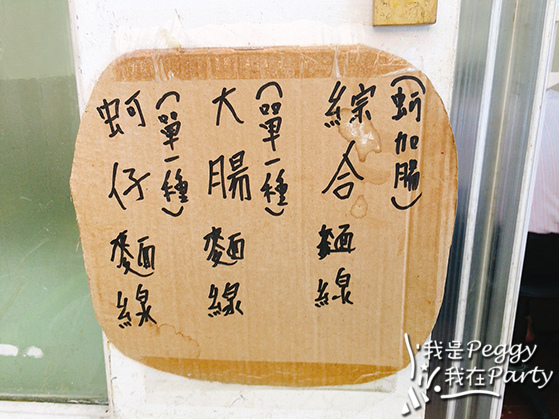 (蚵加腸)
綜合麵線
(單一種)
大腸麵線
(單一種)
蚵仔麵線
我是Peggy
我在Party